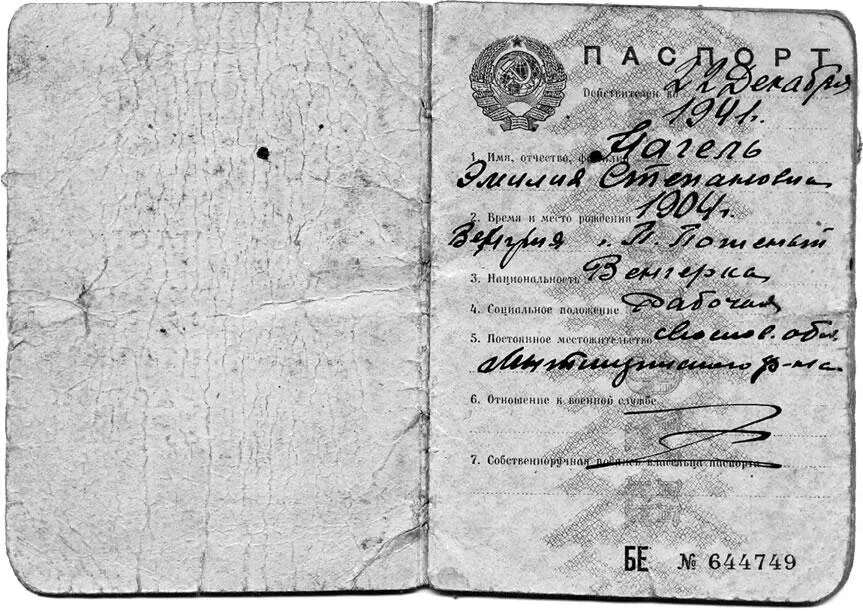 ПАСПОРТ
Действителен по 22 Декабря
1941г.
1. Имя, отчество, фамилия Нагель
Эмилия Степановна
2. Время и место рождения 1904г.
Венгрия г.
3. Национальность Венгерка
4. Социальное положение Рабочая
5. Постоянное местожительство Москов. обл.
Мытищинского р-на
6. Отношение к военной службе
7. Собственноручная подпись владельца паспорта
БЕ № 644749